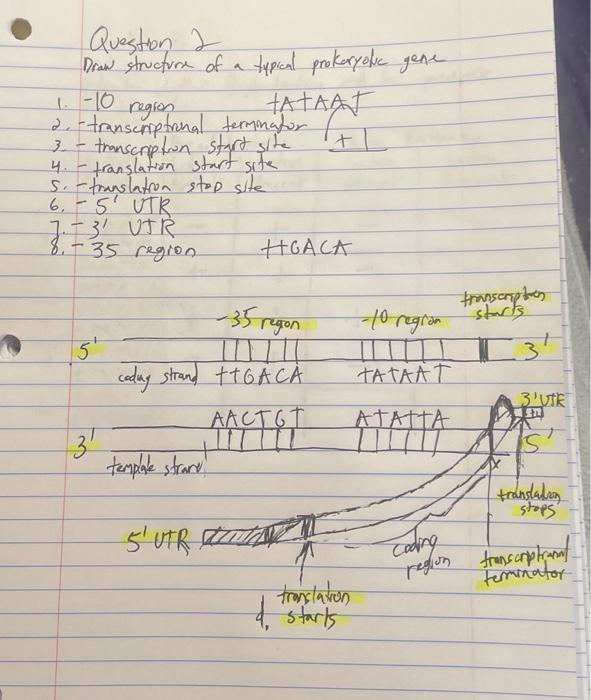 Question 2
Draw structure of a typical prokaryotic gene
1. -10 region tATAAT
2. - transcriptional terminator
3. - transcription start site +1
4. - translation start site
5. - translation stop site
6. - 5' UTR
7. - 3' UTR
8. - 35 region ttGACA
transcription
starts
-35 region -10 region
5' 3'
coding strand ttGACA tATAAT
3' UTR
AACTGT ATATTA
3' 5'
template strand
translation
stops
5' UTR
coding
region
transcriptional
terminator
translation
d. starts